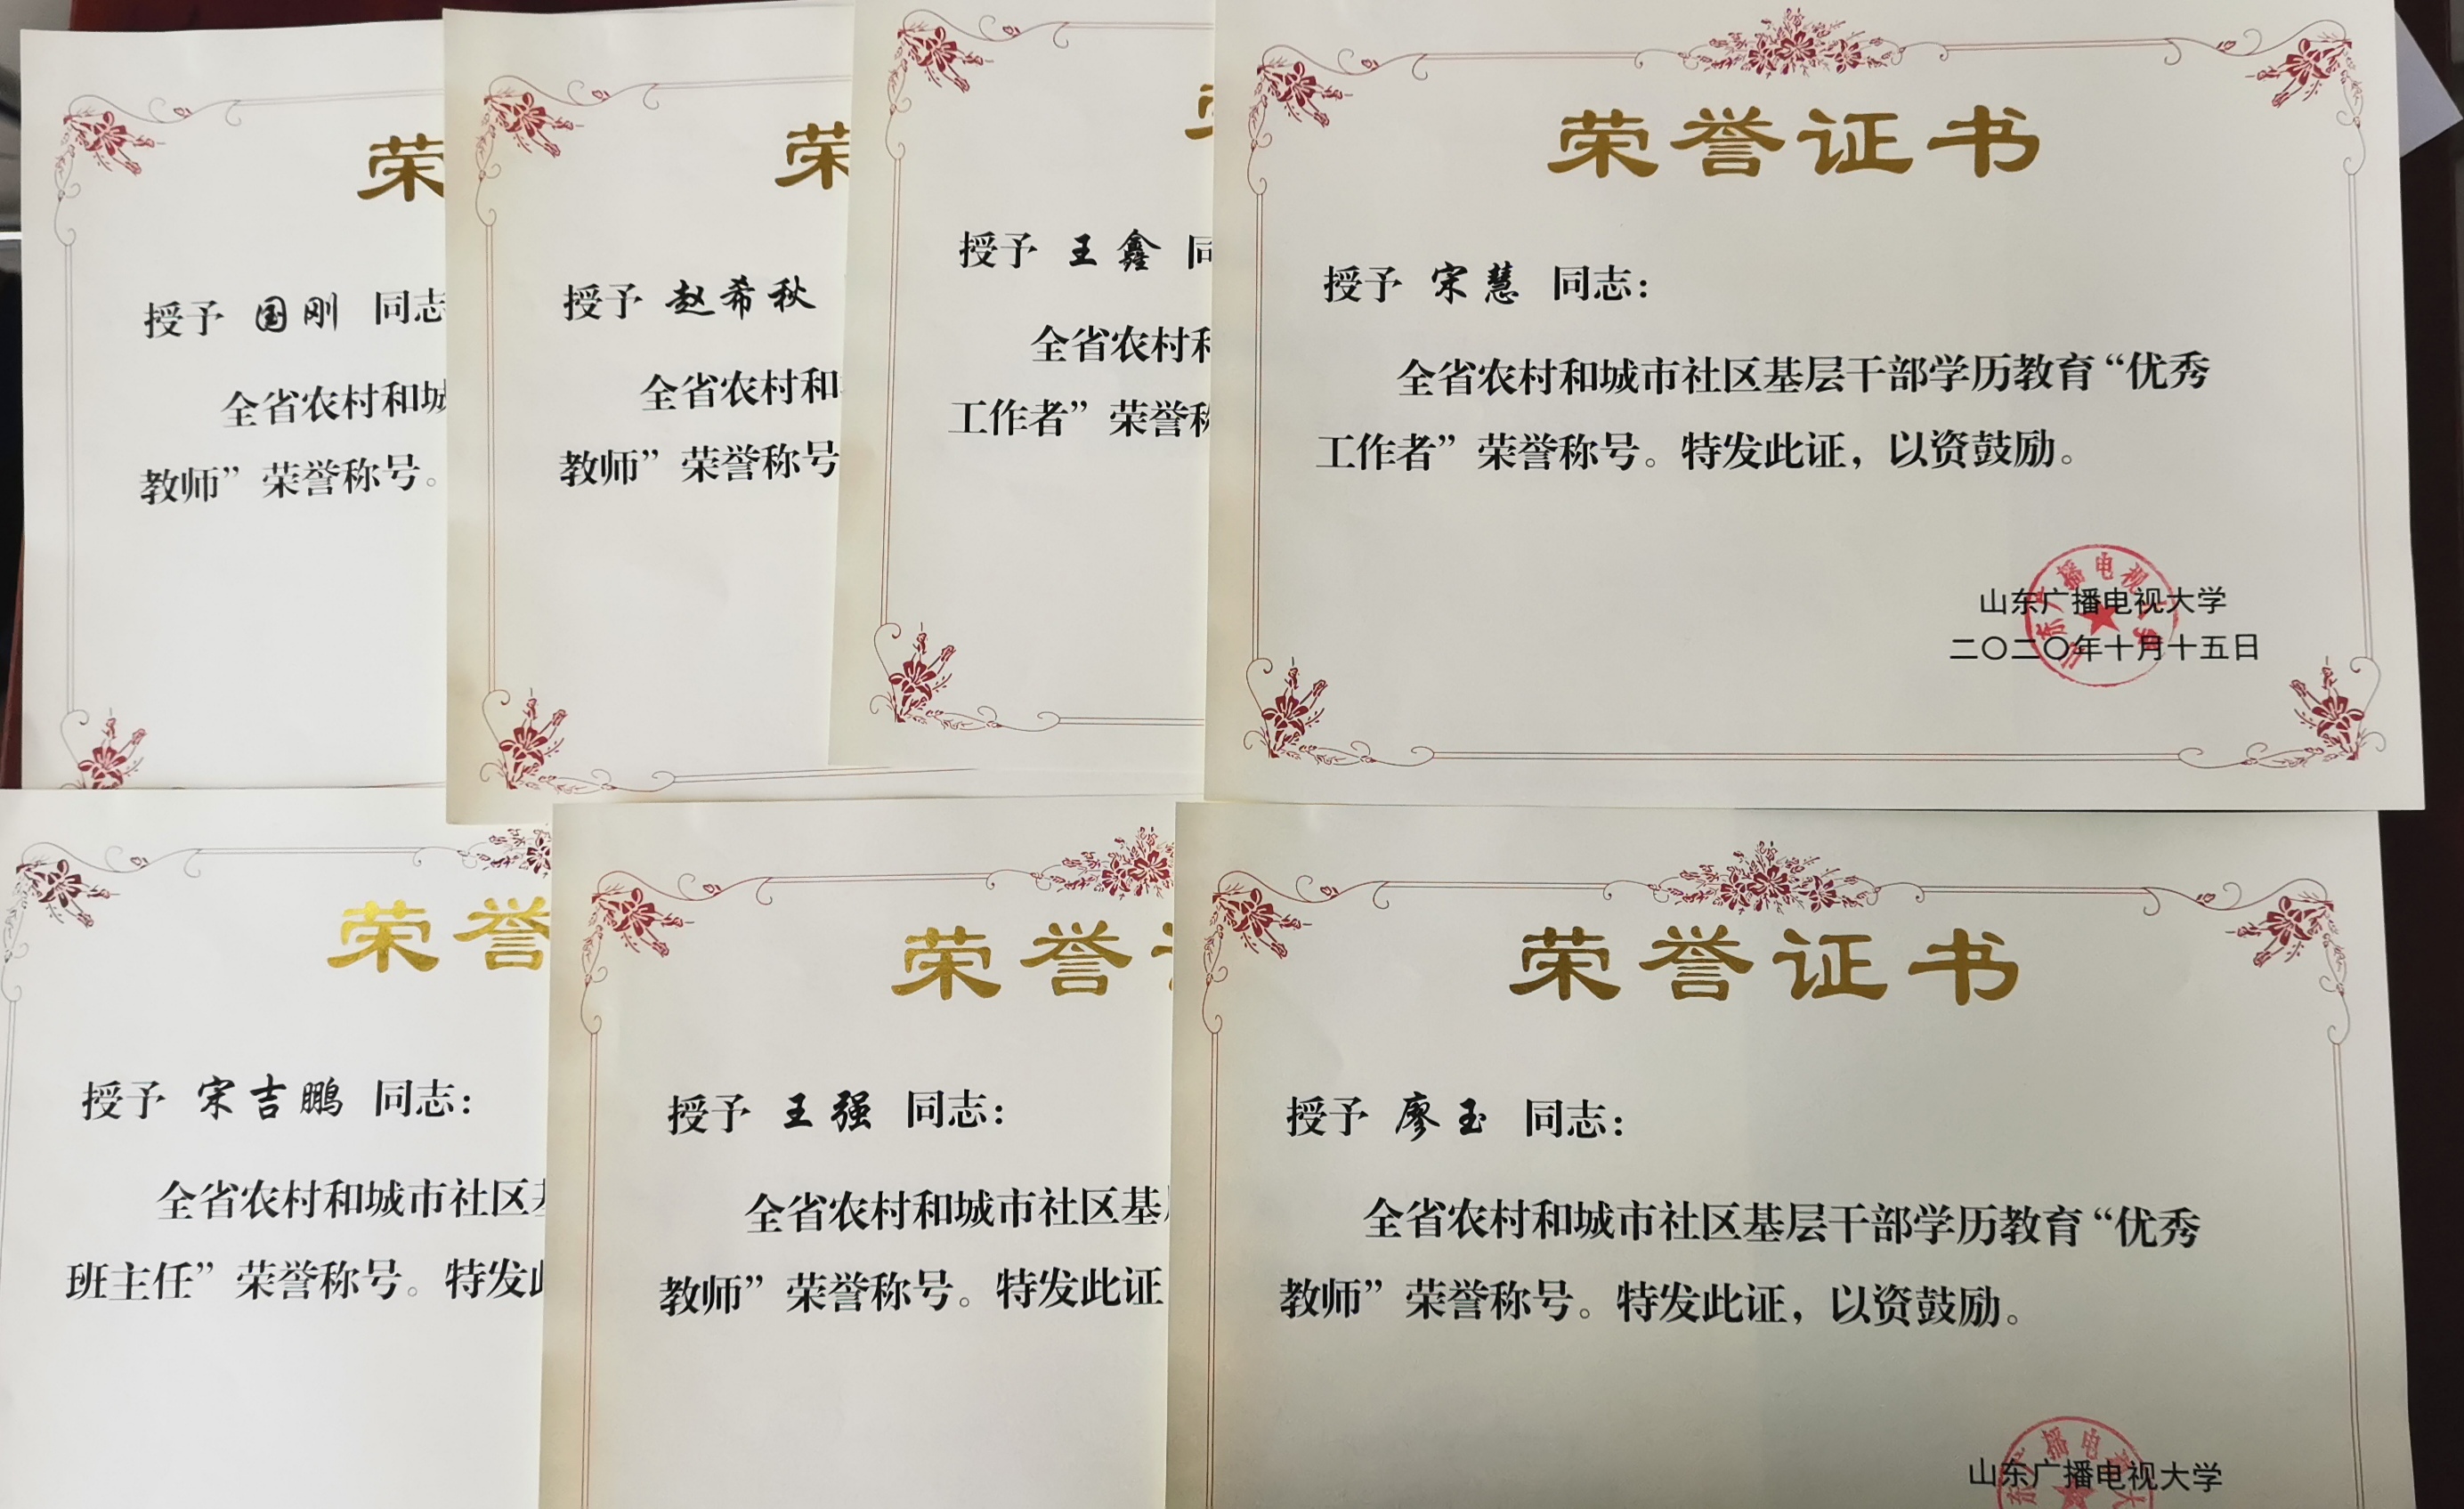 荣
授予 国刚 同志
全省农村和城
教师”荣誉称号。
荣
授予 赵希秋
全省农村和
教师”荣誉称号
授予 王鑫 同
全省农村和
工作者”荣誉称
荣誉证书
授予 宋慧 同志：
全省农村和城市社区基层干部学历教育“优秀
工作者”荣誉称号。特发此证，以资鼓励。
山东广播电视大学
二〇二〇年十月十五日
山东广播电视大学
荣誉
授予 宋吉鹏 同志：
全省农村和城市社区
班主任”荣誉称号。特发此
荣誉
授予 王强 同志：
全省农村和城市社区基
教师”荣誉称号。特发此证
荣誉证书
授予 廖玉 同志：
全省农村和城市社区基层干部学历教育“优秀
教师”荣誉称号。特发此证，以资鼓励。
山东广播电视大学
东广播电视大